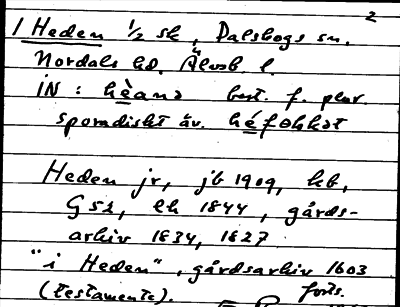 2
1 Heden 1/2 sk, Dalskogs sn.
Nordals hd. Älvsb. l.
iN: hèana best. f. plur.
sporadiskt äv. héfohkət
Heden jr, jb 1909, kb,
G 52, ek 1844, gårds-
arkiv 1834, 1827
"i Heden", gårdsarkiv 1603
(testamente). forts.